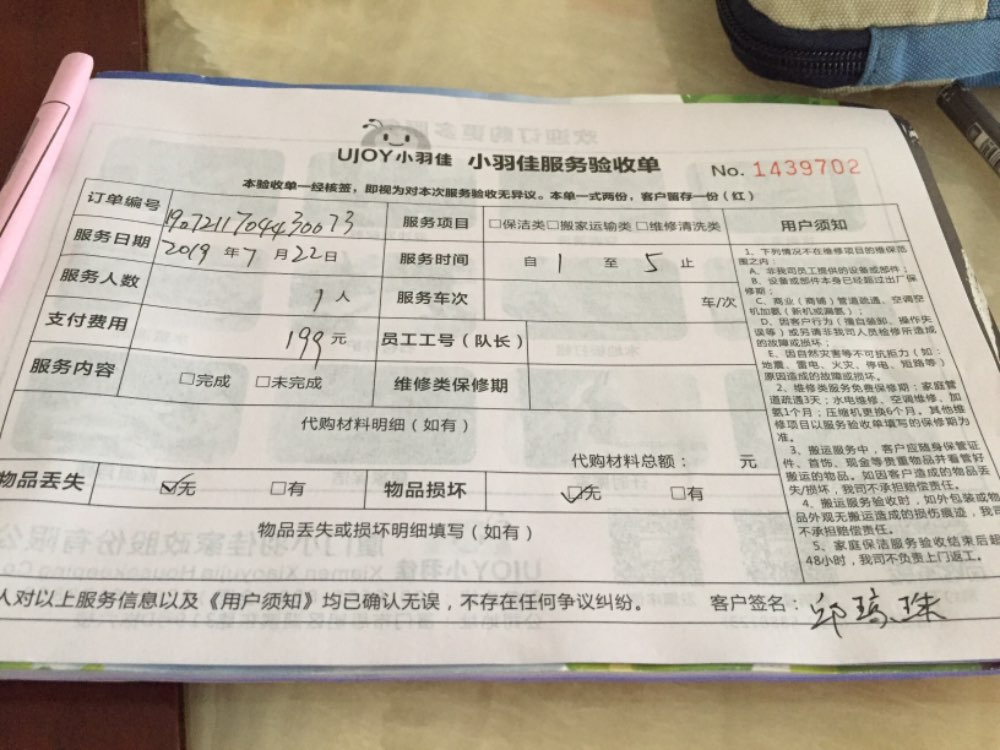 UJOY小羽佳 小羽佳服务验收单 No. 1439702
本验收单一经核签，即视为对本次服务验收无异议。本单一式两份，客户留存一份（红）
订单编号 1907211704430073 服务项目 □保洁类□搬家运输类 □维修清洗类 用户须知
服务日期 2019 年 7 月 22 日 服务时间 自 1 至 5 止
服务人数 1 人 服务车次 车/次
支付费用 199 元 员工工号（队长）
服务内容 □完成 □未完成 维修类保修期
代购材料明细（如有）
代购材料总额： 元
物品丢失 ☑无 □有 物品损坏 ☑无 □有
物品丢失或损坏明细填写（如有）
1、下列情况不在维修项目的维保范
围之内：
A、非我司员工提供的设备或部件；
B、设备或部件本身已经超过出厂保
修期；
C、商业（商铺）管道疏通、空调空
机加氨（新机或漏氨）；
D、因客户行为（擅自装卸、操作失
误等）或另请非我司人员检修所造成
的故障或损坏；
E、因自然灾害等不可抗拒力（如：
地震、雷电、火灾、停电、短路等）
原因造成的故障或损坏。
2、维修类服务免费保修期：家庭管
道疏通3天；水电维修、空调维修、加
氨1个月；压缩机更换6个月。其他维
修项目以服务验收单填写的保修期为
准。
3、搬运服务中，客户应随身保管证
件、首饰、现金等贵重物品并看管好
搬运的物品。如因客户造成的物品丢
失/损坏，我司不承担赔偿责任。
4、搬运服务验收时，如外包装或物
品外观无搬运造成的损伤痕迹，我司
不承担赔偿责任。
5、家庭保洁服务验收结束后超
48小时，我司不负责上门返工。
人对以上服务信息以及《用户须知》均已确认无误，不存在任何争议纠纷。 客户签名：邱 珠